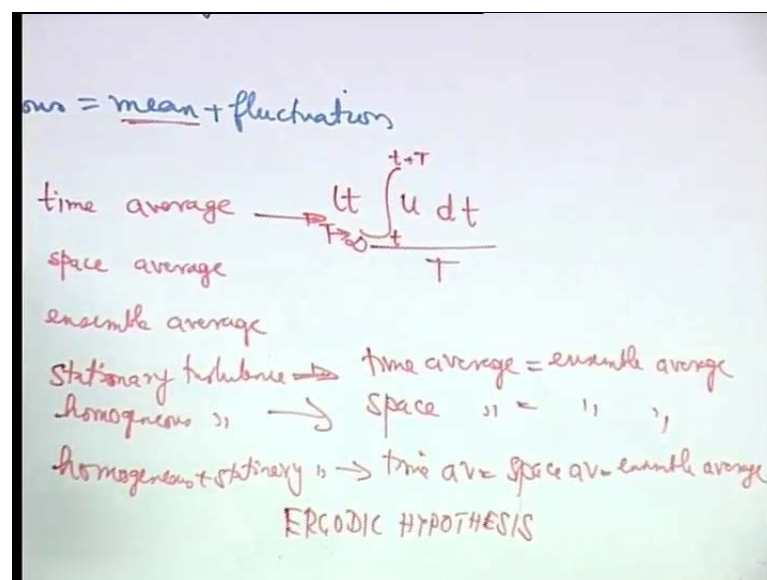 ous = mean + fluctuation
time average → lt T→∞ ∫ t t+T u dt / T
space average
ensemble average
stationary turbulence → time average = ensemble average
homogneous ,, → space ,, = ,, ,,
homogeneous + stationary ,, → time av = space av = ensemble average
ERGODIC HYPOTHESIS